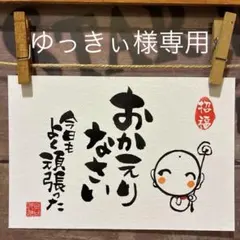 ゆっきぃ様専用
招福
おかえり
なさい
今日も
よく頑張った